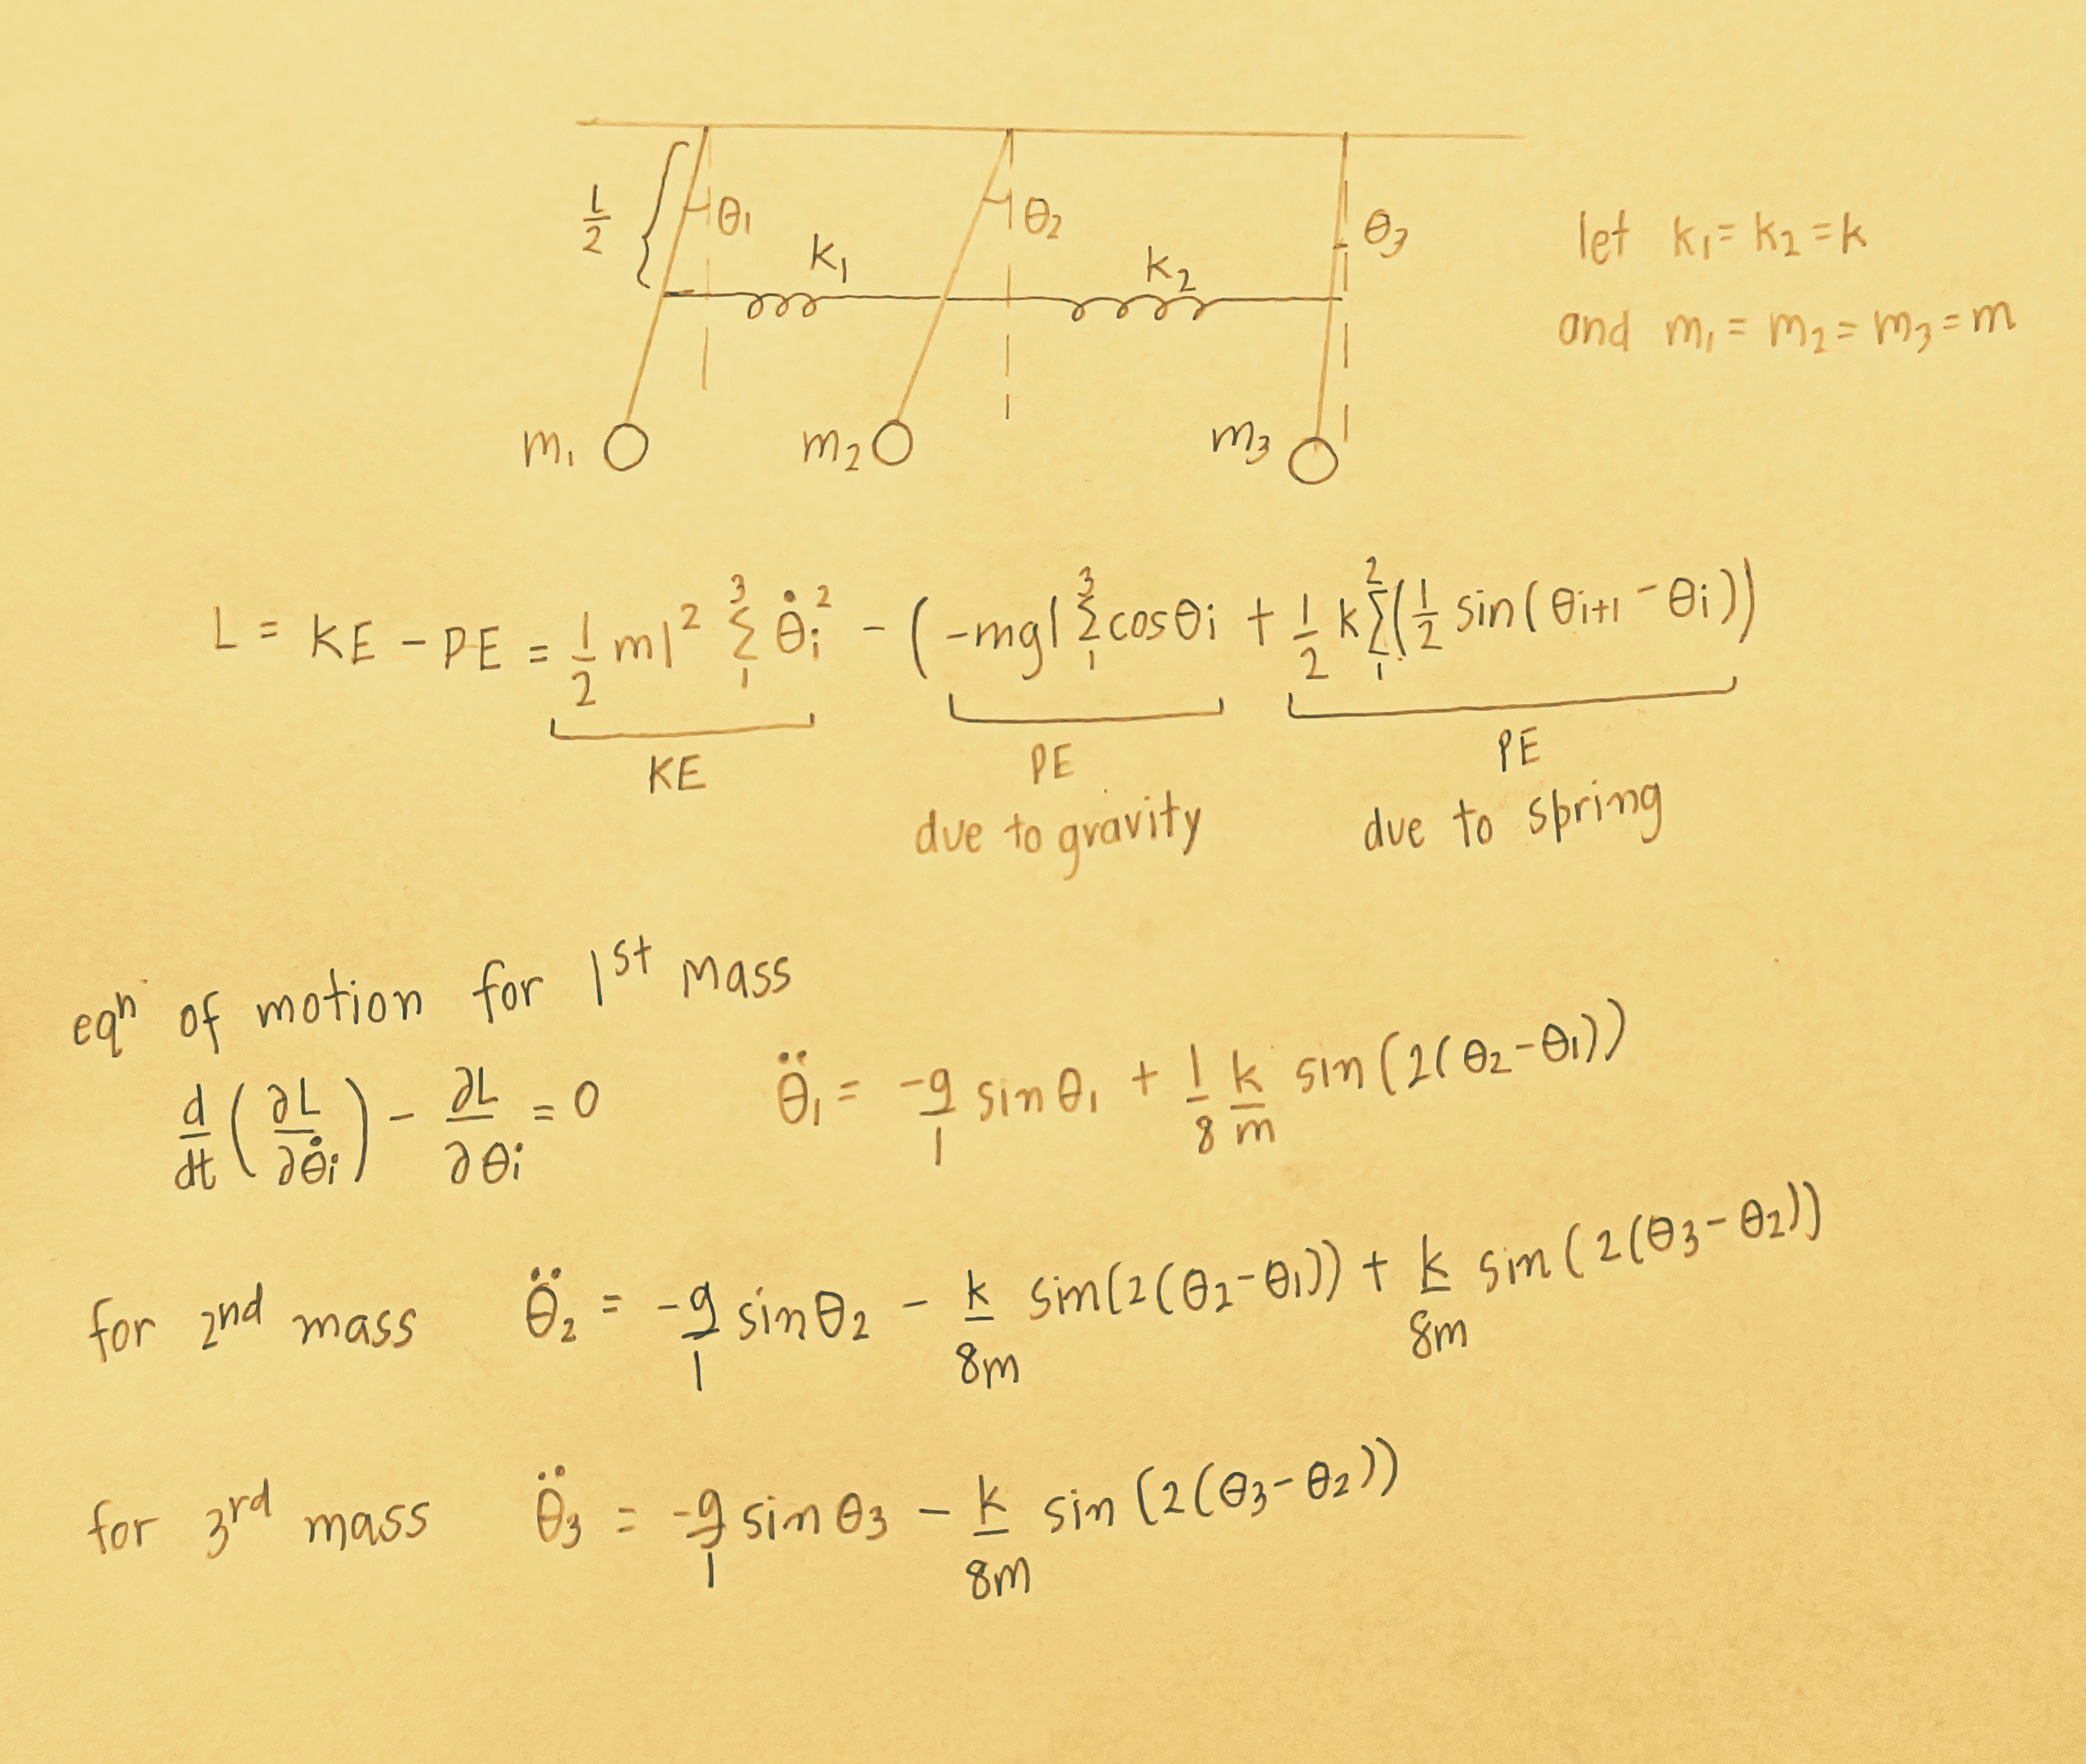 L/2 θ1 θ2 θ3
k1 k2
let k1 = k2 = k
and m1 = m2 = m3 = m
m1 m2 m3
L = KE - PE = 1/2 ml² 3Σ1 θ̇i² - (-mgl 3Σ1 cosθi + 1/2 k 2Σ1 (1/2 sin(θi+1 - θi))
KE
PE
due to gravity
PE
due to spring
eqⁿ of motion for 1st mass
d/dt (∂L/∂θ̇i) - ∂L/∂θi = 0 θ̈1 = -g/l sinθ1 + 1/8 k/m sin(2(θ2-θ1))
for 2nd mass θ̈2 = -g/l sinθ2 - k/8m sin(2(θ2-θ1)) + k/8m sin(2(θ3-θ2))
for 3rd mass θ̈3 = -g/l sinθ3 - k/8m sin(2(θ3-θ2))